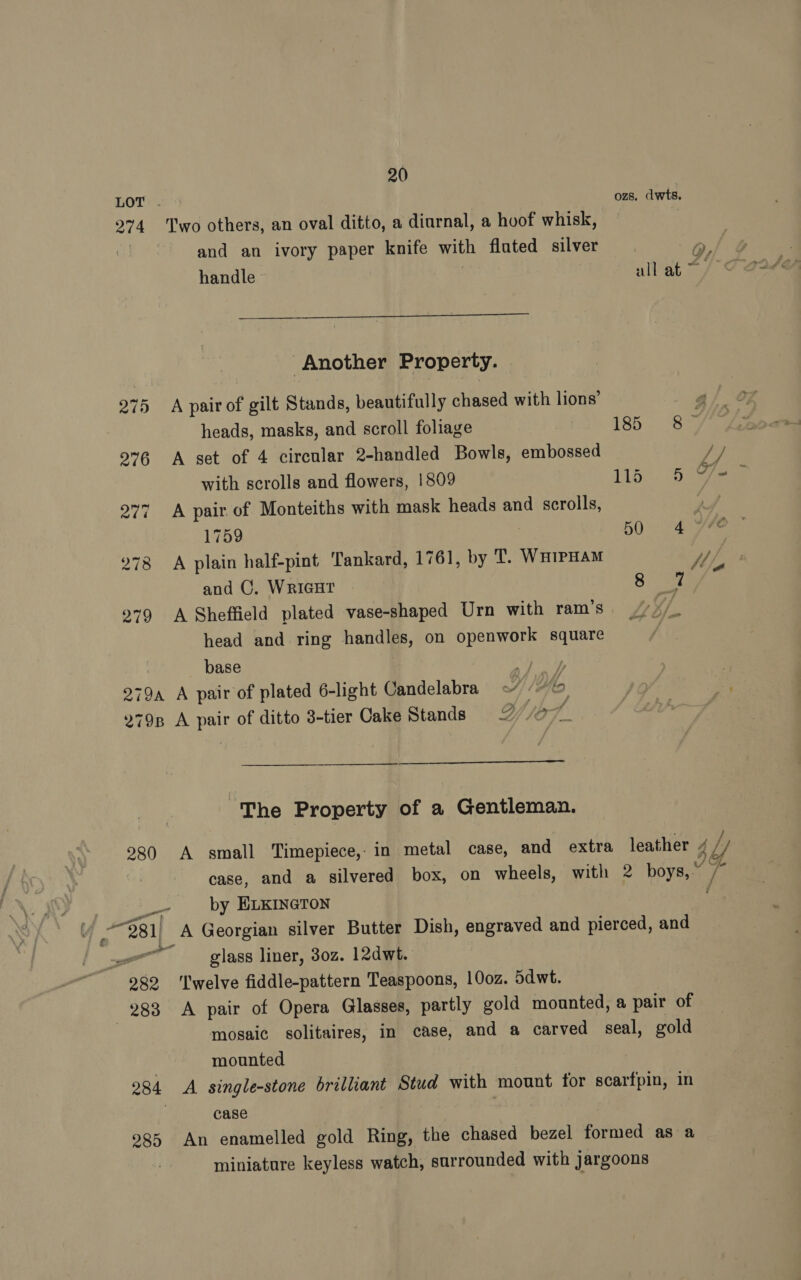 20
LOT ozs. dwts.
274 Two others, an oval ditto, a diurnal, a hoof whisk,
and an ivory paper knife with fluted silver
handle all at
Another Property.
275 A pair of gilt Stands, beautifully chased with lions’
heads, masks, and scroll foliage 185 8
276 A set of 4 circular 2-handled Bowls, embossed
with scrolls and flowers, 1809 115 5
277 A pair of Monteiths with mask heads and scrolls,
1759 50 4
278 A plain half-pint Tankard, 1761, by T. WHIPHAM
and C. WRIGHT 8 7
279 A Sheffield plated vase-shaped Urn with ram’s
head and ring handles, on openwork square
base
279A A pair of plated 6-light Candelabra
279B A pair of ditto 3-tier Cake Stands
The Property of a Gentleman.
280 A small Timepiece, in metal case, and extra leather
case, and a silvered box, on wheels, with 2 boys,
by ELKINGTON
281 A Georgian silver Butter Dish, engraved and pierced, and
glass liner, 3oz. 12dwt.
282 Twelve fiddle-pattern Teaspoons, 10oz. 5dwt.
283 A pair of Opera Glasses, partly gold mounted, a pair of
mosaic solitaires, in case, and a carved seal, gold
mounted
284 A single-stone brilliant Stud with mount for scarfpin, in
case
285 An enamelled gold Ring, the chased bezel formed as a
miniature keyless watch, surrounded with jargoons